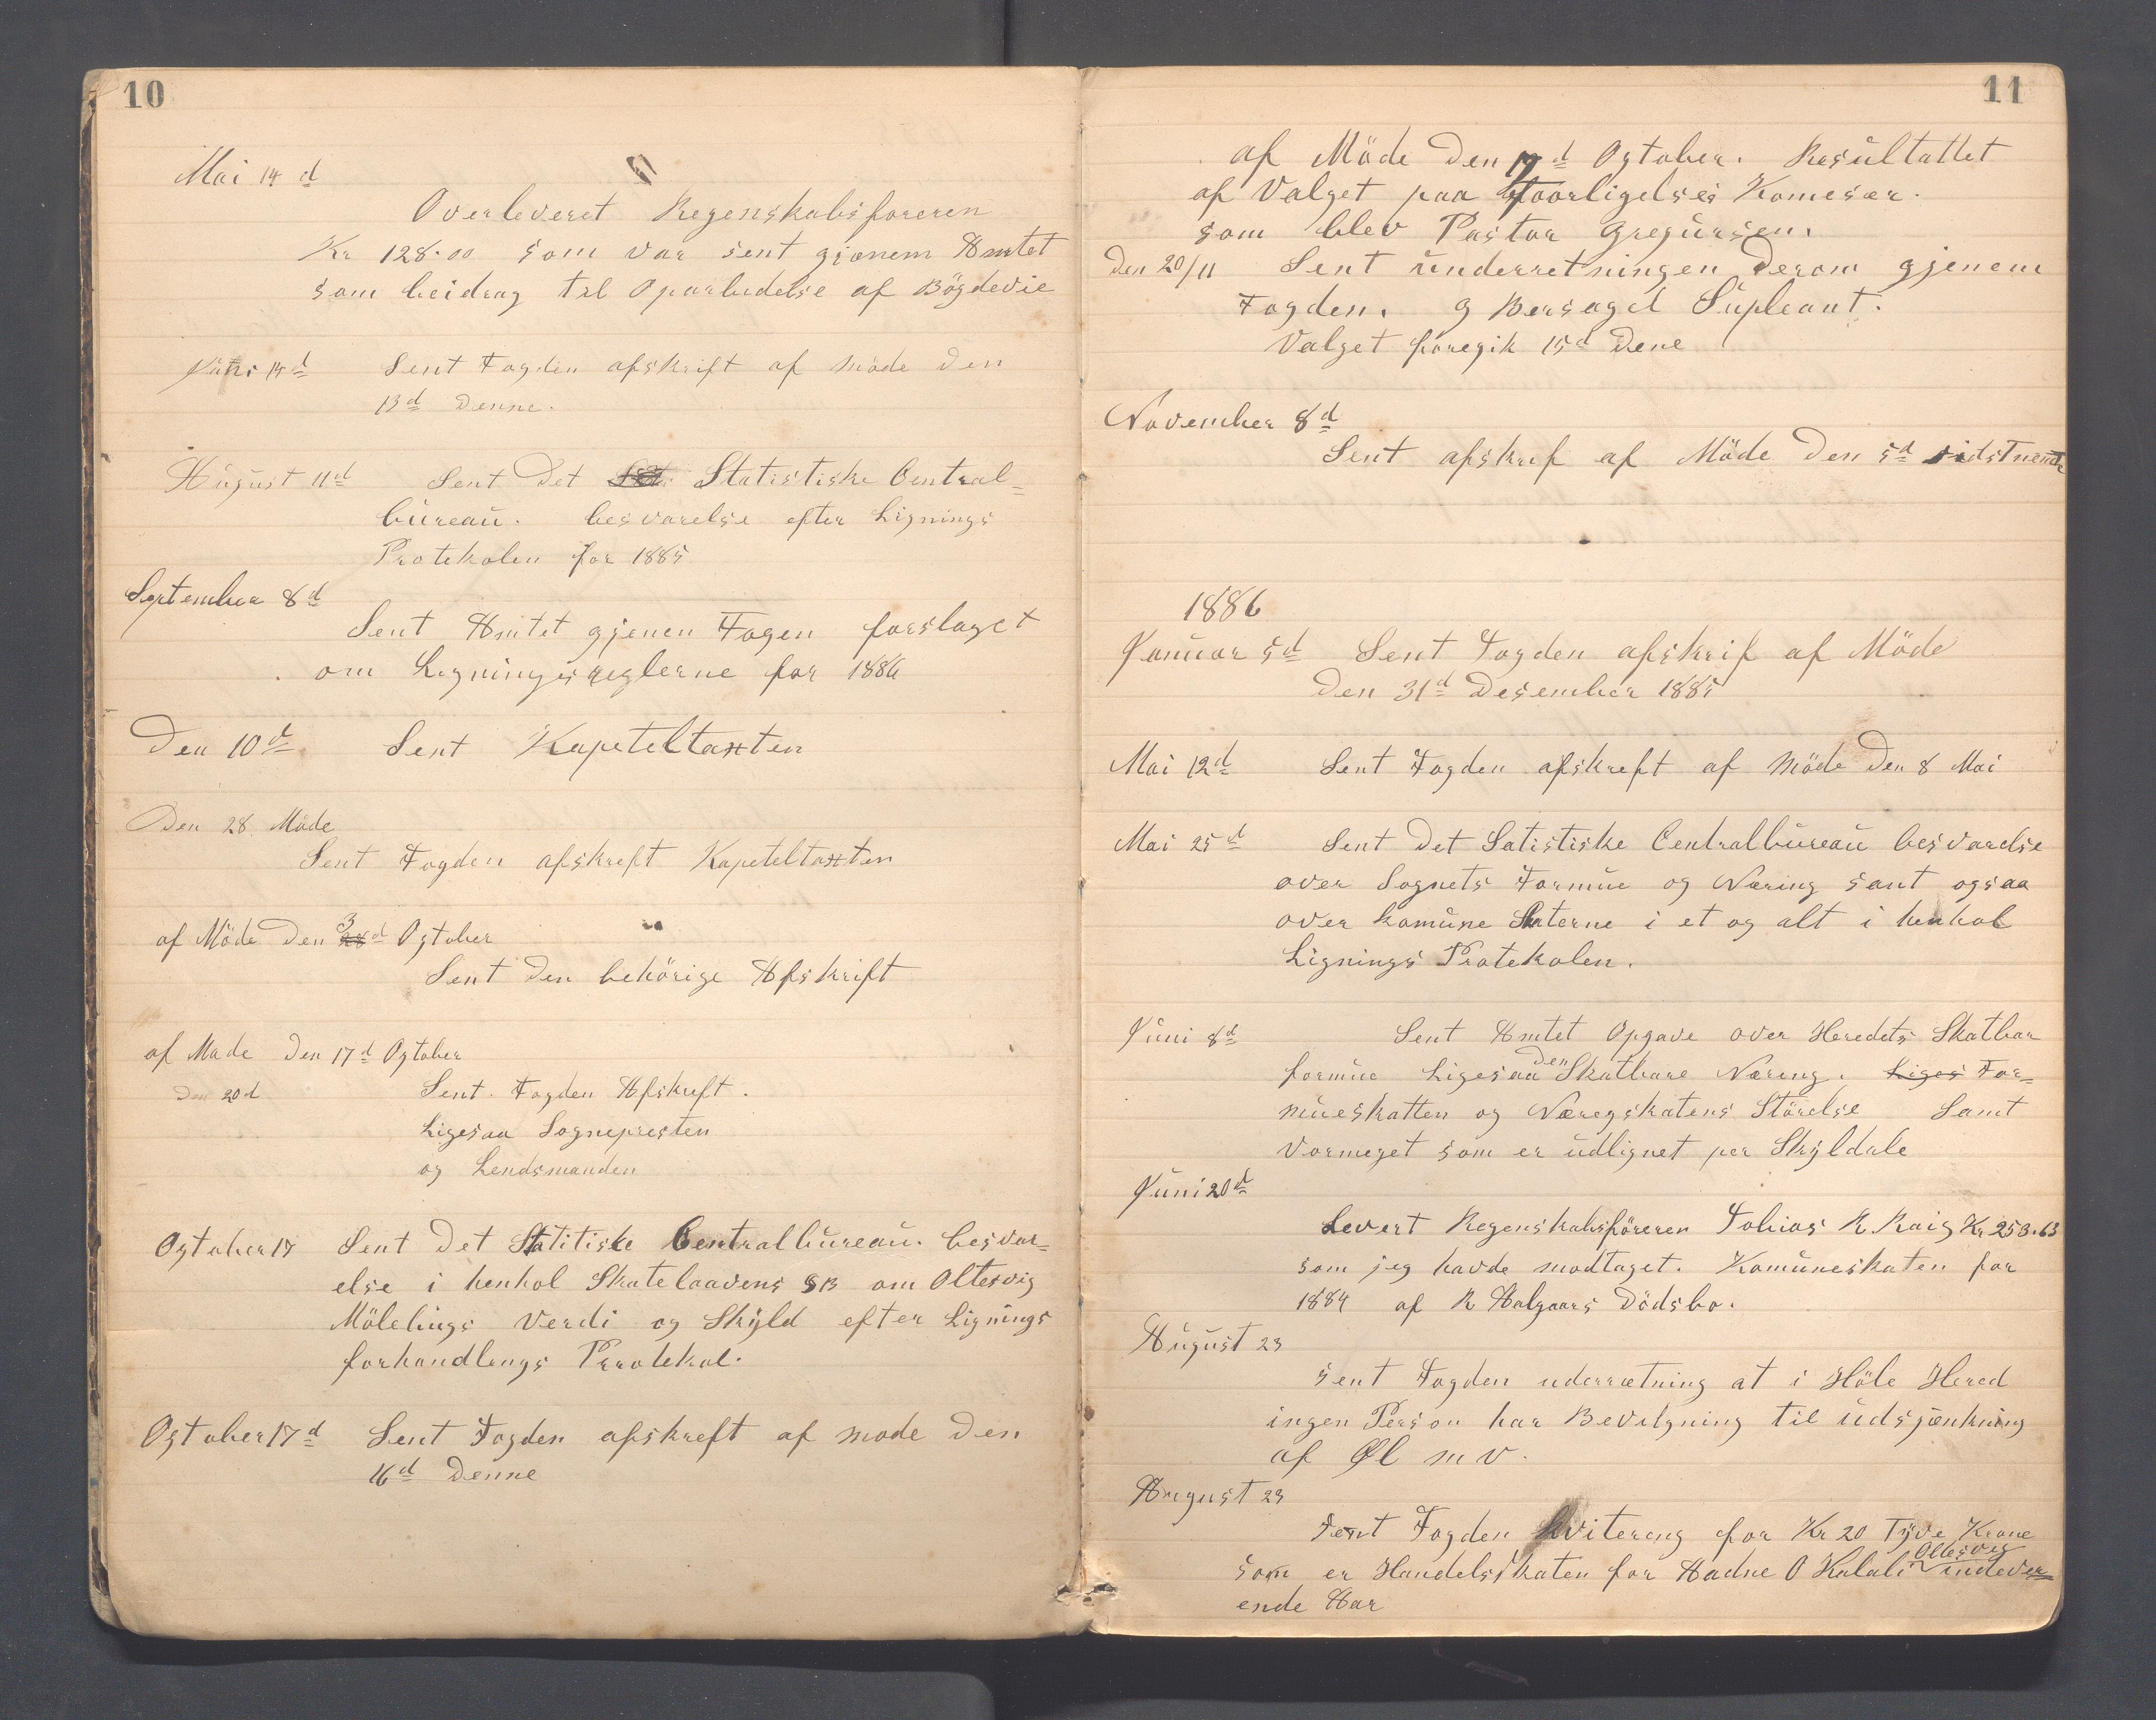 10
Mai 14d
Overleveret Regenskabsföreren
Kr 128.00 som var sent gjenem Amtet
som beidrag til Oparbedelse af Bögdevie
Juni 14d Sent Fogden afskrift af Möde den
13d Denne.
August 11d Sent Det Statistiske Central=
büreaü. besvarelse efter Lignings
Protekolen for 1885
September 8d
Sent Amtet gjenen Fogen forslaget
om Ligningsreglerne for 1886
Den 10d Sent Kapeteltaxten
Den 28 Möde
Sent Fogden afskreft Kapeteltaxten
af Möde Den 3d Ogtober
Sent Den behörige Afskrift
af Mode Den 17d Ogtober
Den 20d Sent Fogden Afskreft.
Ligesaa Sognepresten
og Lendsmanden
Ogtober 17 Sent Det Statitiske Centralbüreaü. besvar=
else i henhol Skatelaavens § 13 om Oltesvig
Mölebugs Verdi og Sküld efter Lignings
forhandlengs Prrotekol.
Ogtober 17d Sent Fogden afskreft af mode Den
16d Denne
11
af Möde Den 17d Ogtober. Resültattet
af Valget paa Forligelses Komesær.
som blev Pastor Gregürsen.
Den 20/11 Sent ünderretningen Derom gjenem
Fogden. G Bersagel Süpleant.
Valget foregik 15d Dene
November 8d
Sent afskref af Möde Den 5d sidstnente
1886
Janüar 5d Sent Fogden afskrif af Möde
Den 31d Desember 1885
Mai 12d Sent Fogden afskreft af Möde Den 8 Mai
Mai 25d Sent Det Satistiske Centralbüreaü besvarelse
over Sognets Formüe og Næring samt ogsaa
over komüne Skaterne i et og alt i henhol
Lignings Protekolen.
Jüni 8d Sent Amtet Opgave over Heredets Skatbar
formüe Ligesaa Den Skatbare Næreng. Liges For=
müeskatten og Næregskatens Störelse Samt
Vormeget som er üdlignet per Sküldale
Jüni 20d
Levert Regenskabsföreren Tobias R. Raig Kr 253.63
som jeg havde modtaget. Komüneskaten for
1884 af R Halgaars Dödsbo.
Aügust 23
Sent Fogden uderrætning at i Höle Hered
ingen Person har Bevilgning til üdsjænkning
af Øl m v.
August 23
Sent Fogden kvitereng for Kr 20 Tyve Krone
som er Handelsskaten for Aadne O Kalali Oltesvig indever=
ende Aar